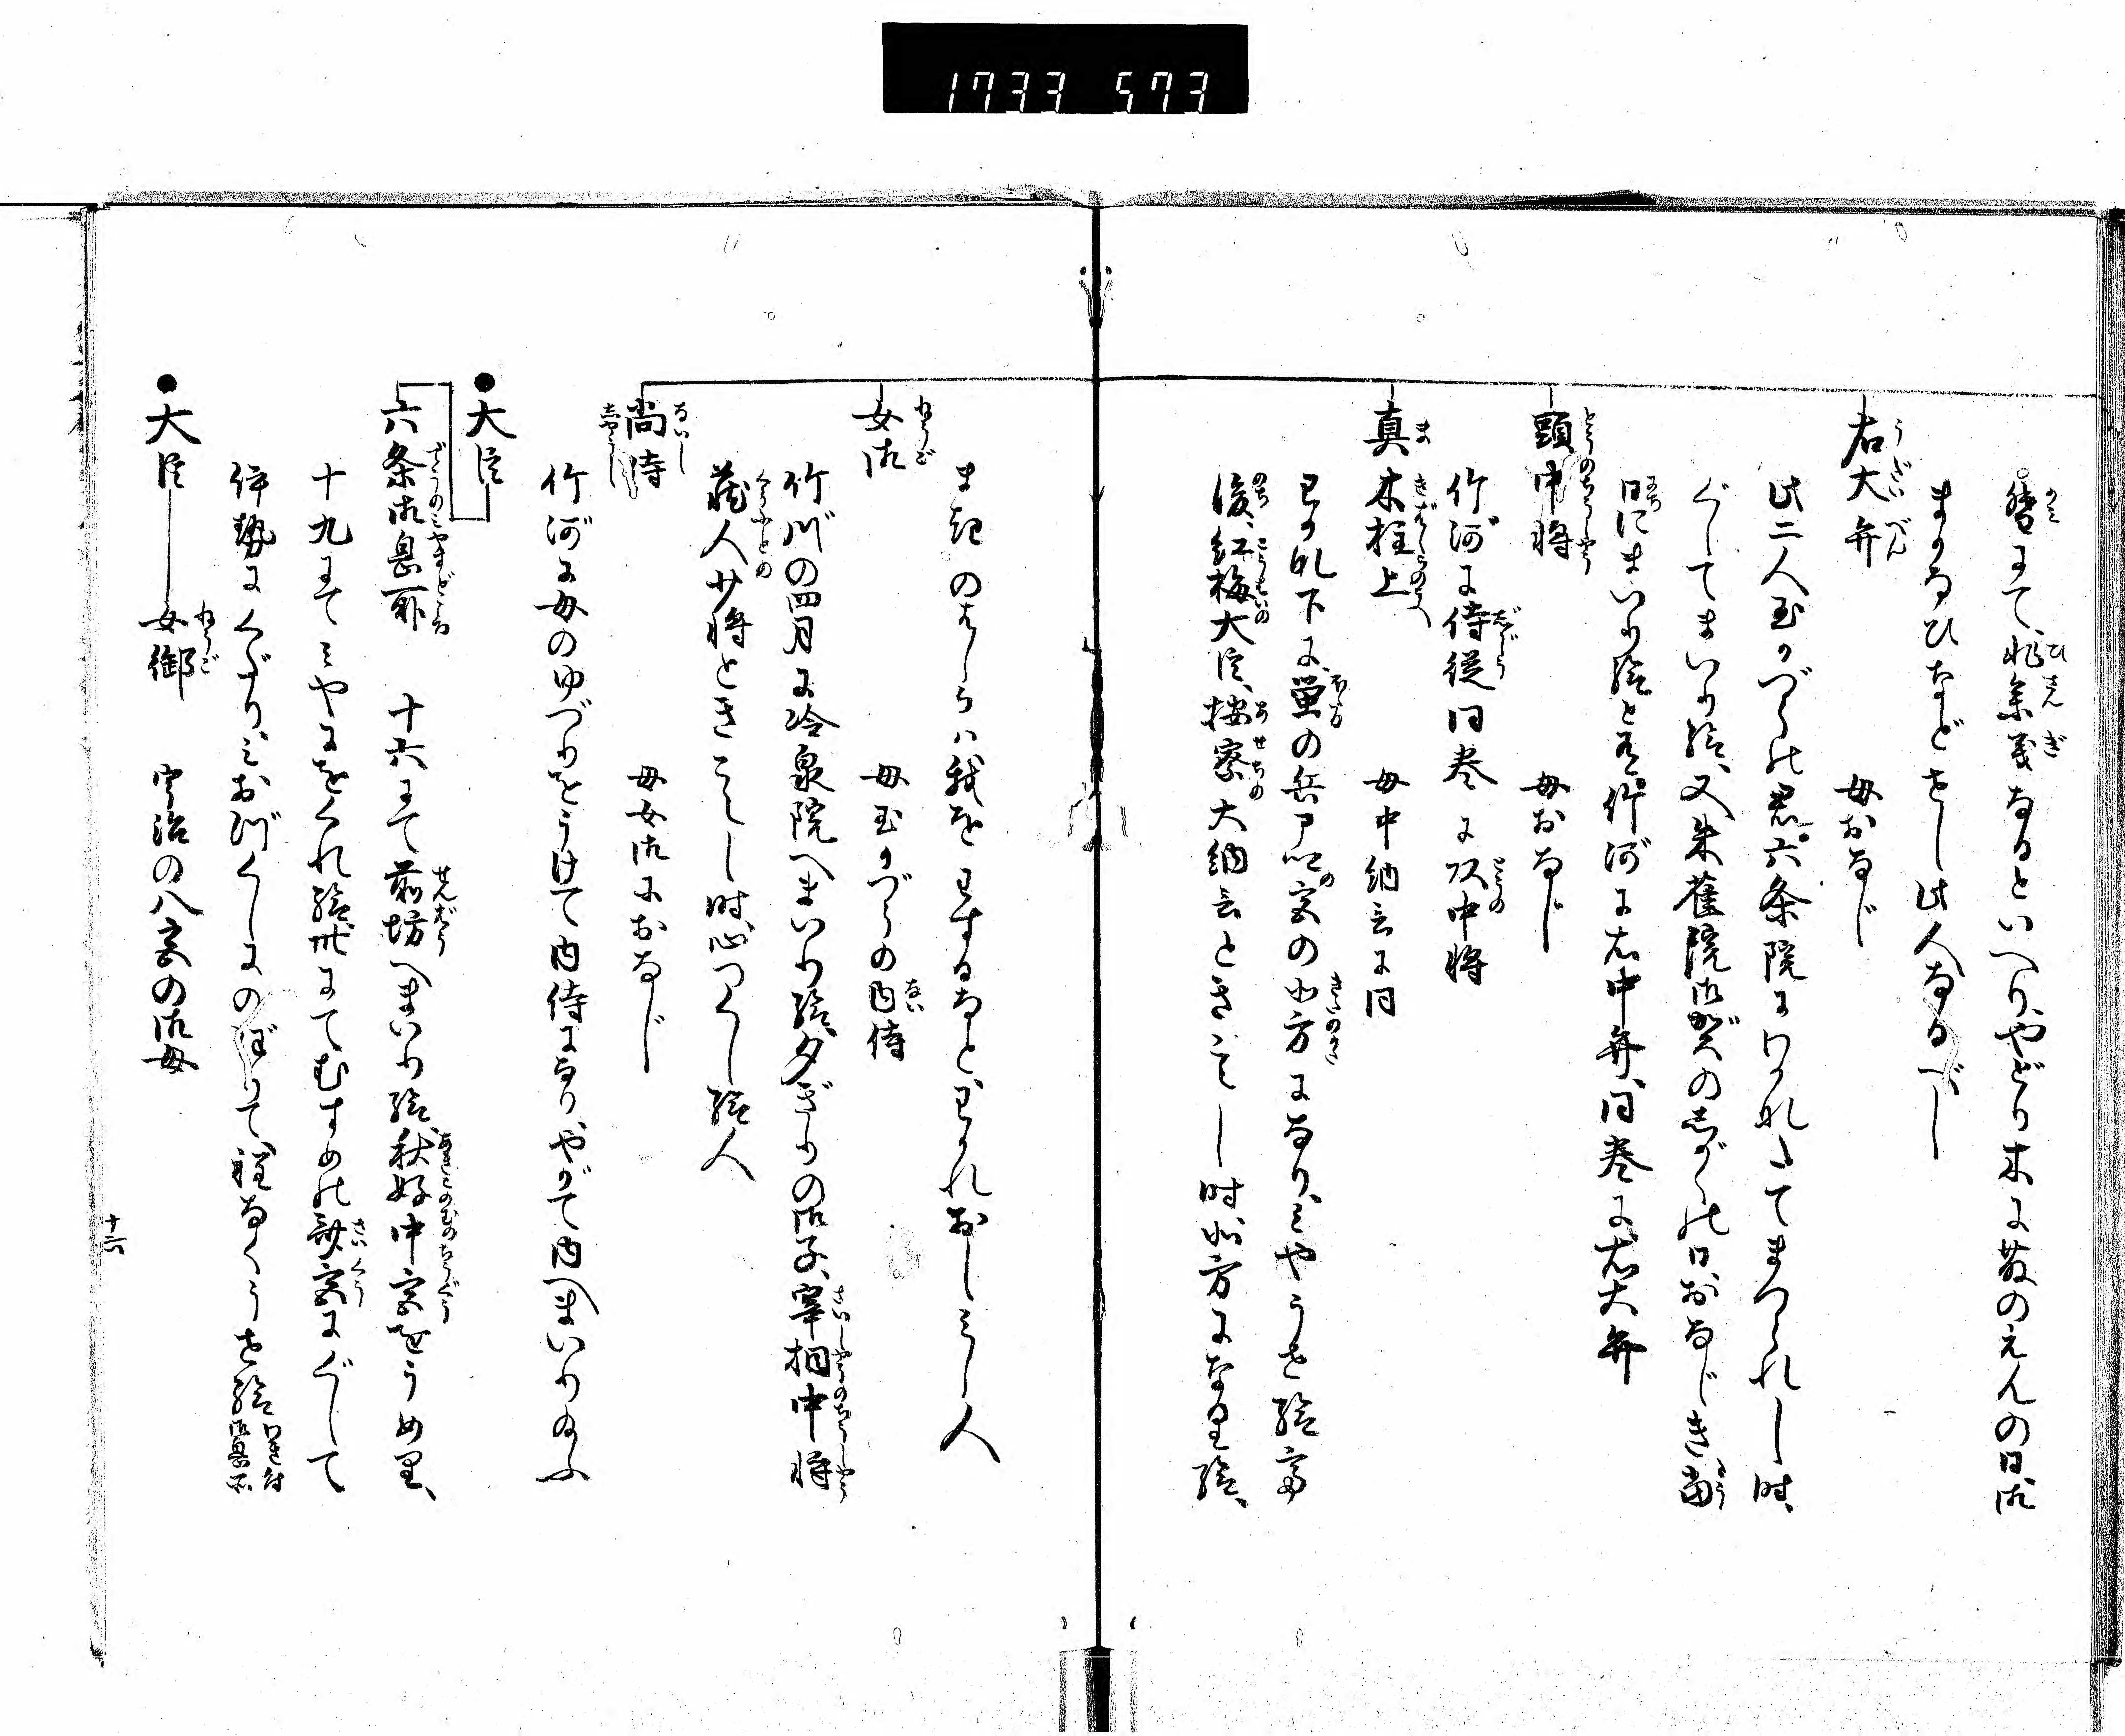 1733 573
督にて、非参議なるといへり、やどり木に藤のえんの日御
まかなひなどせし此人なるべし
右大弁 母おなじ
此二人玉かづらの君六条院にわかれたてまつられし時、
ぐしてまいり給、又朱雀院御賀のしがくの日おなじき当
日にまいり給と有、竹河に右中弁、同巻に右大弁
頭中将 母おなじ
竹河に侍従同巻に頭中将
真木柱上 母中納言に同
わか巻下に、蛍の兵部卿の宮の北方になり、みやうせ給て
後、紅梅大臣、按察大納言ときこえし時北方になり給、
まきのはしらは我をわするなとよまれおはしましし人
女御 母玉かづらの内侍
竹川の四月に冷泉院へまいり給、夕ぎりの御子、宰相中将
蔵人少将ときこえし時、心つくし給人
尚侍 母女御におなじ
竹河に母のゆづりをうけて内侍になり、やがて内へまいり給ふ
大臣
六条御息所 十六にて前坊へまいり給、秋好中宮をうめり、
十九にてみやにをくれ給、卅にてむすめの斎宮にぐして
伊勢にくだり、みおつくしにのぼりて、程なくうせ給
大臣 女御 宇治の八宮の御母
十六